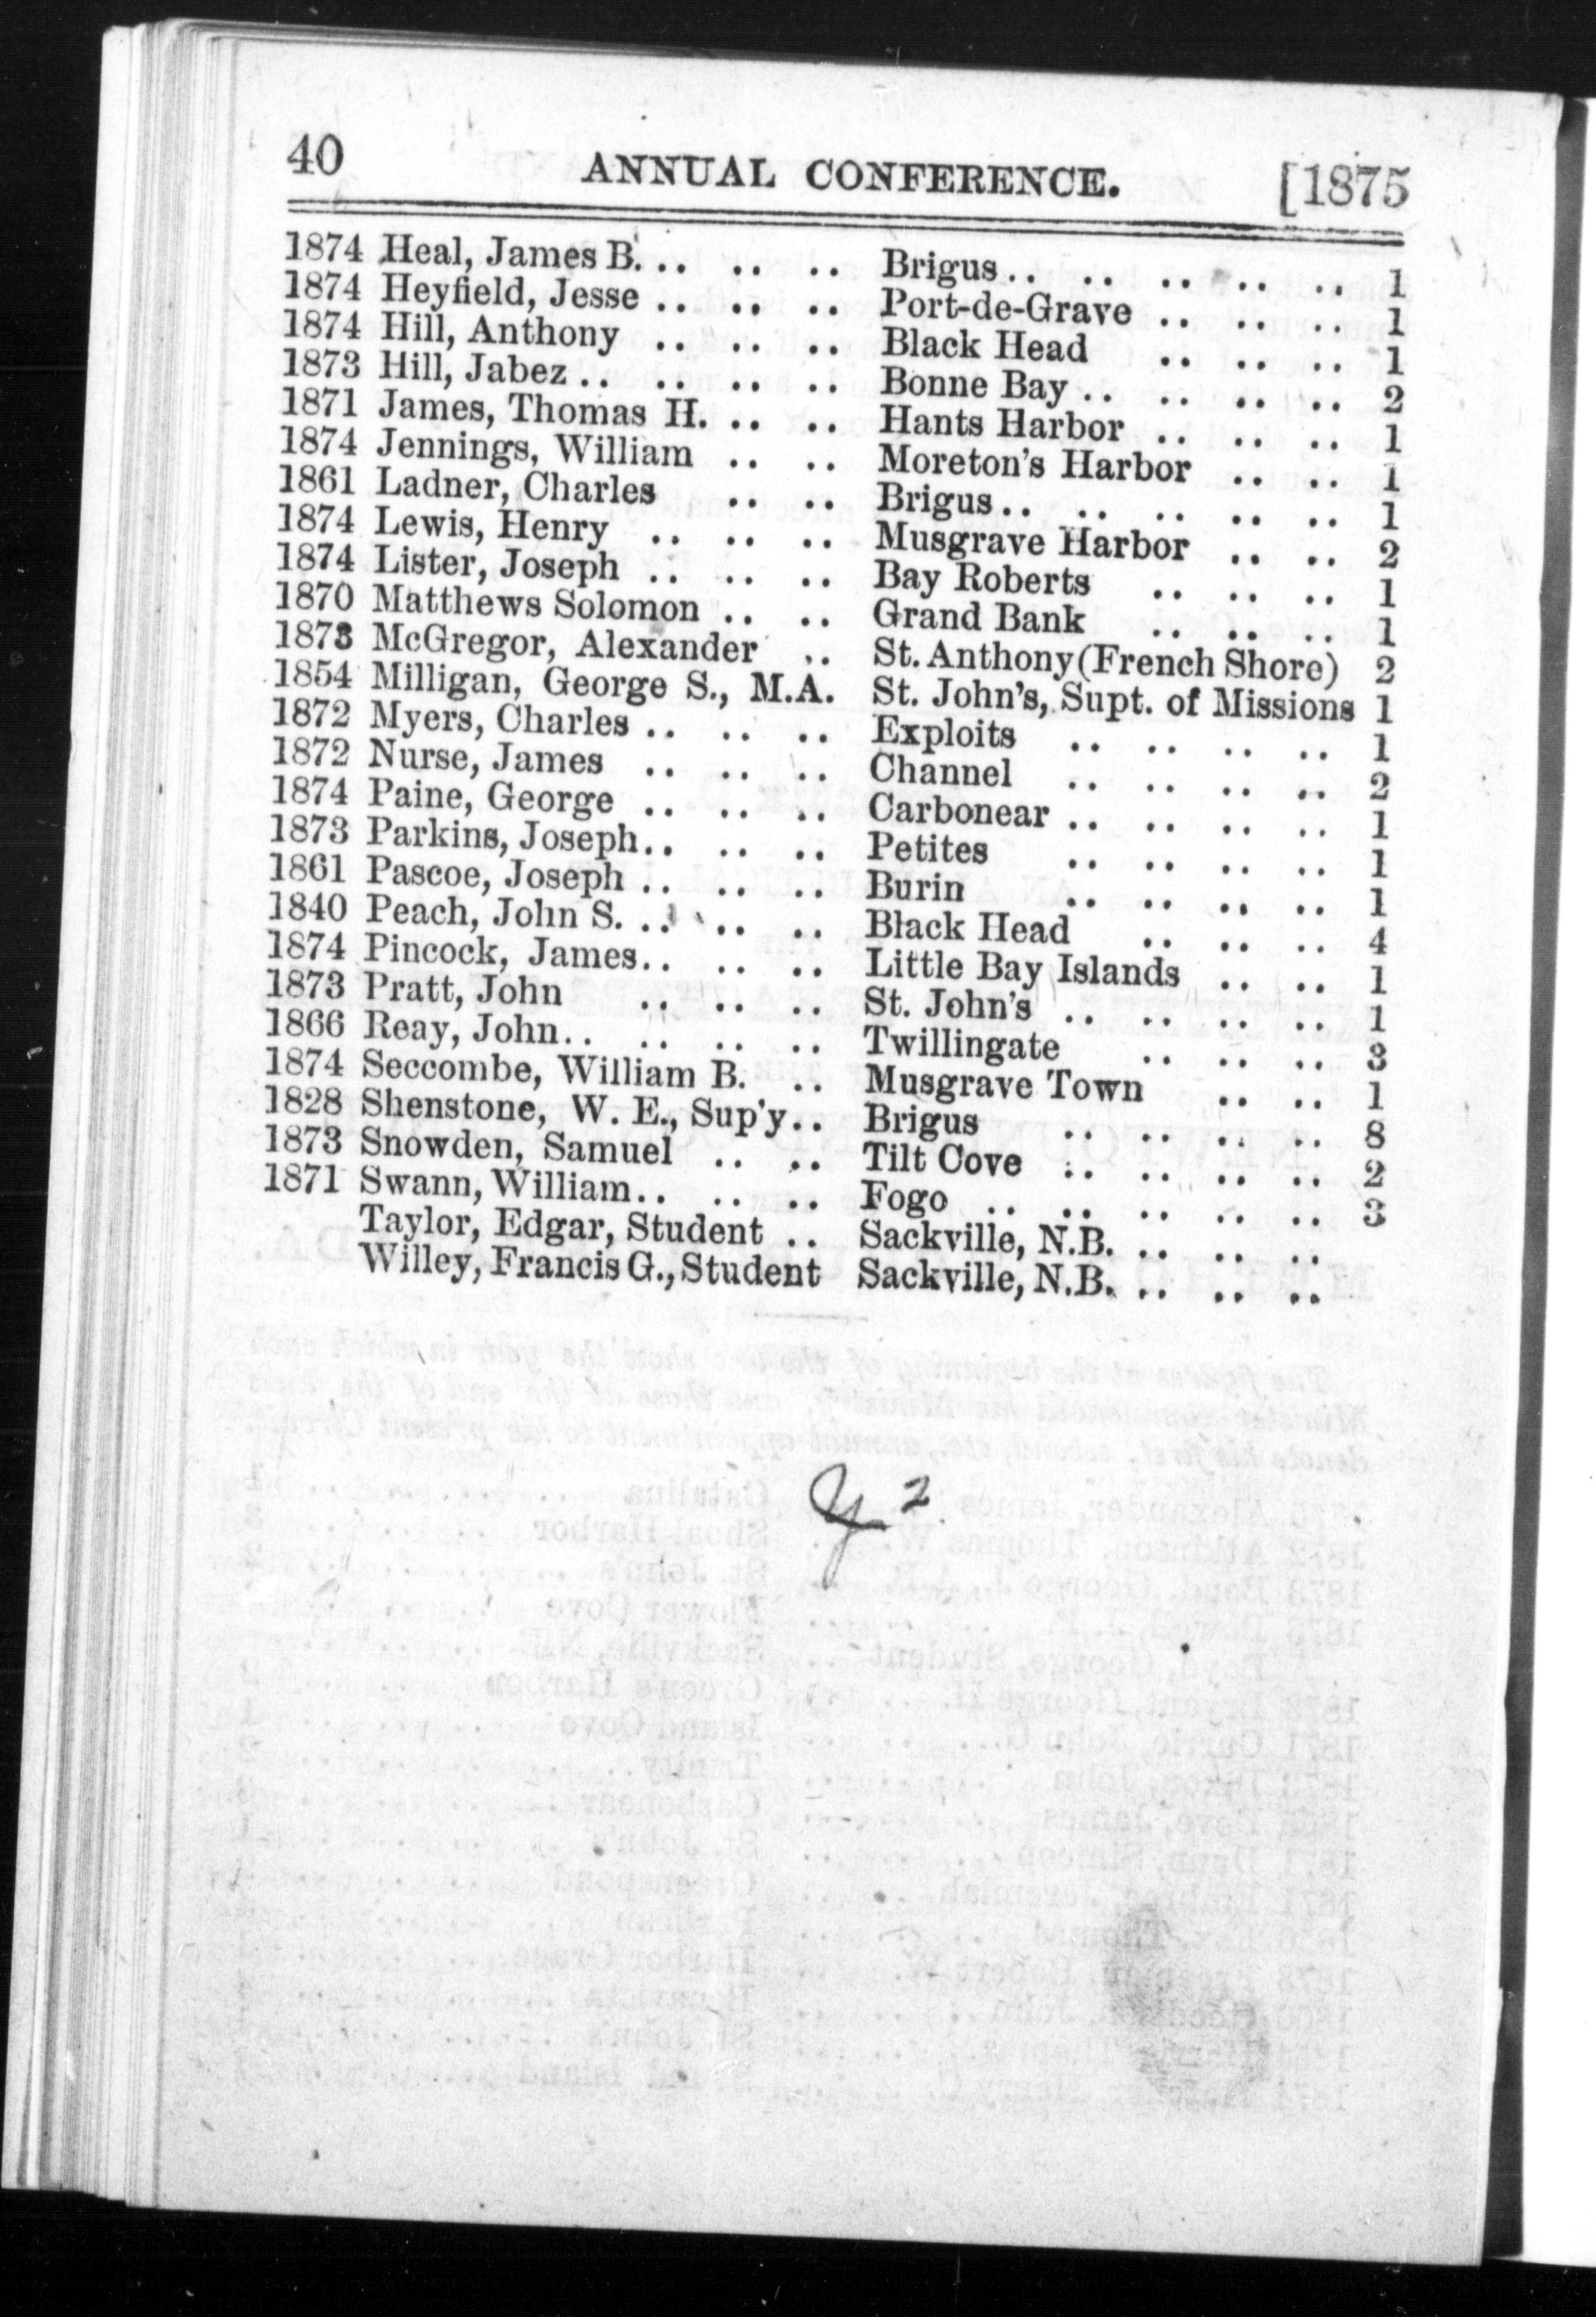 40 ANNUAL CONFERENCE. [1875
1874 Heal, James B. .. .. .. Brigus .. .. .. .. .. 1
1874 Heyfield, Jesse .. .. .. Port-de-Grave .. .. .. 1
1874 Hill, Anthony .. .. .. Black Head .. .. .. 1
1873 Hill, Jabez .. .. .. .. Bonne Bay .. .. .. .. 2
1871 James, Thomas H. .. .. Hants Harbor .. .. .. 1
1874 Jennings, William .. .. Moreton's Harbor .. .. 1
1861 Ladner, Charles .. .. Brigus .. .. .. .. .. 1
1874 Lewis, Henry .. .. .. Musgrave Harbor .. .. 2
1874 Lister, Joseph .. .. .. Bay Roberts .. .. .. 1
1870 Matthews Solomon .. .. Grand Bank .. .. .. 1
1873 McGregor, Alexander .. St. Anthony (French Shore) 2
1854 Milligan, George S., M.A. St. John's, Supt. of Missions 1
1872 Myers, Charles .. .. .. Exploits .. .. .. .. 1
1872 Nurse, James .. .. .. Channel .. .. .. .. 2
1874 Paine, George .. .. .. Carbonear .. .. .. .. 1
1873 Parkins, Joseph .. .. .. Petites .. .. .. .. 1
1861 Pascoe, Joseph .. .. .. Burin .. .. .. .. 1
1840 Peach, John S. .. .. .. Black Head .. .. .. 4
1874 Pincock, James .. .. .. Little Bay Islands .. .. 1
1873 Pratt, John .. .. .. St. John's .. .. .. .. 1
1866 Reay, John .. .. .. .. Twillingate .. .. .. 3
1874 Seccombe, William B. .. Musgrave Town .. .. 1
1828 Shenstone, W. E., Sup'y .. Brigus .. .. .. .. 8
1873 Snowden, Samuel .. .. Tilt Cove .. .. .. .. 2
1871 Swann, William .. .. .. Fogo .. .. .. .. .. 3
Taylor, Edgar, Student .. Sackville, N.B. .. .. ..
Willey, Francis G., Student Sackville, N.B. .. .. ..
2